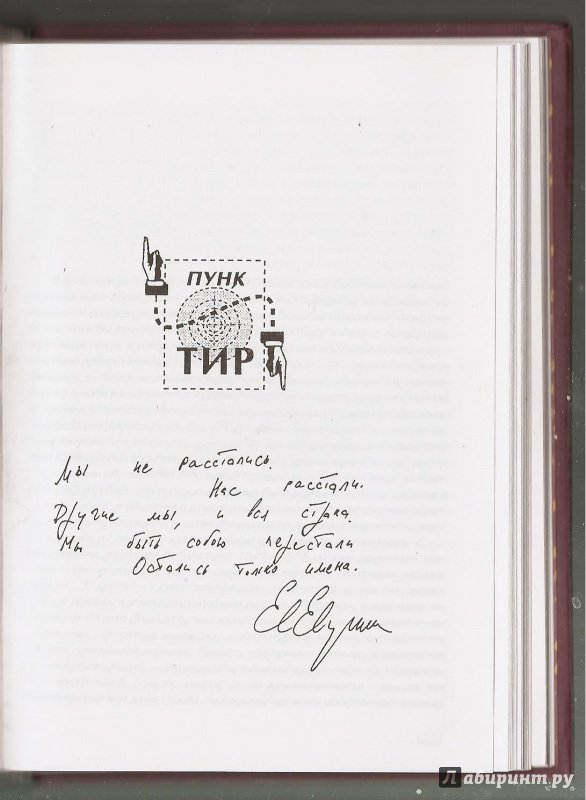 ПУНК
ТИР
Мы не расстались.
Нас расстали.
Другие мы, и вся страна.
Мы быть собою перестали
Остались только имена.
Лабиринт.ру